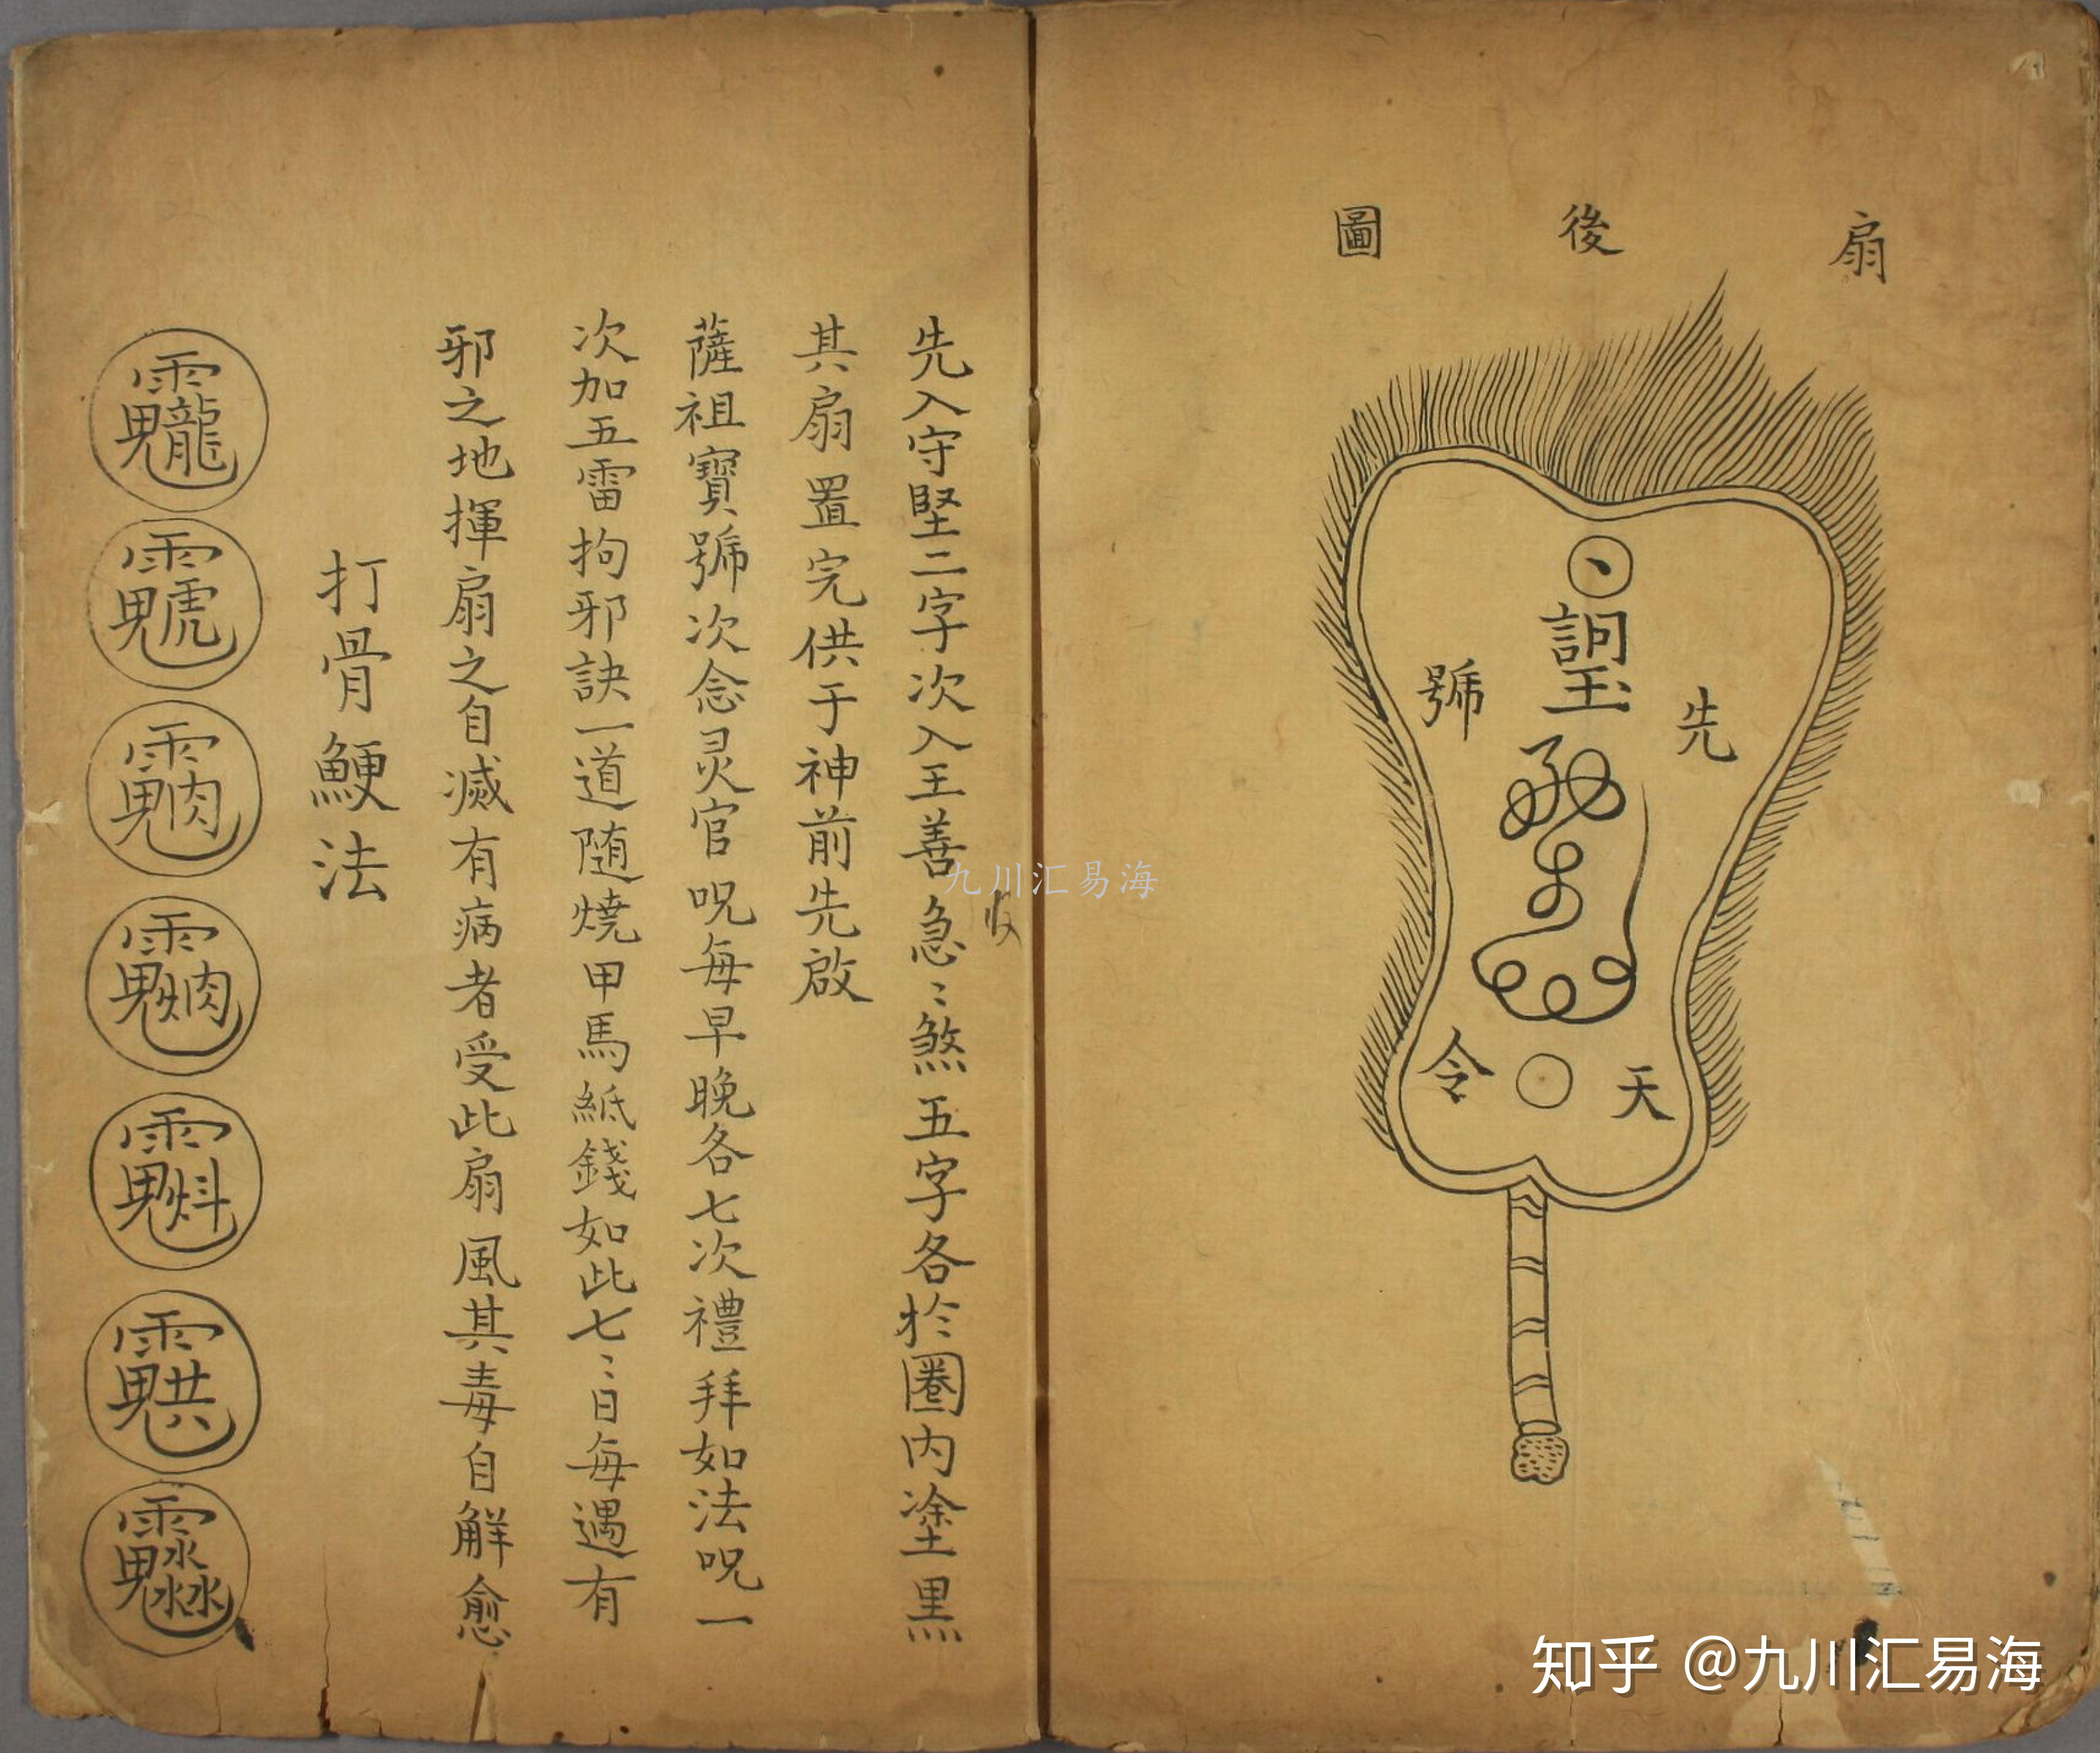 扇後圖
先號
天令
先入守堅二字次入王善急〻煞五字各於圈內塗黑
收
其扇置完供于神前先啟
薩祖寶號次念灵官呪每早晚各七次禮拜如法呪一
次加五雷拘邪訣一道随燒甲馬紙錢如此七〻日每遇有
邪之地揮扇之自滅有病者受此扇風其毒自解愈
打骨鯁法
九川汇易海
知乎 @九川汇易海